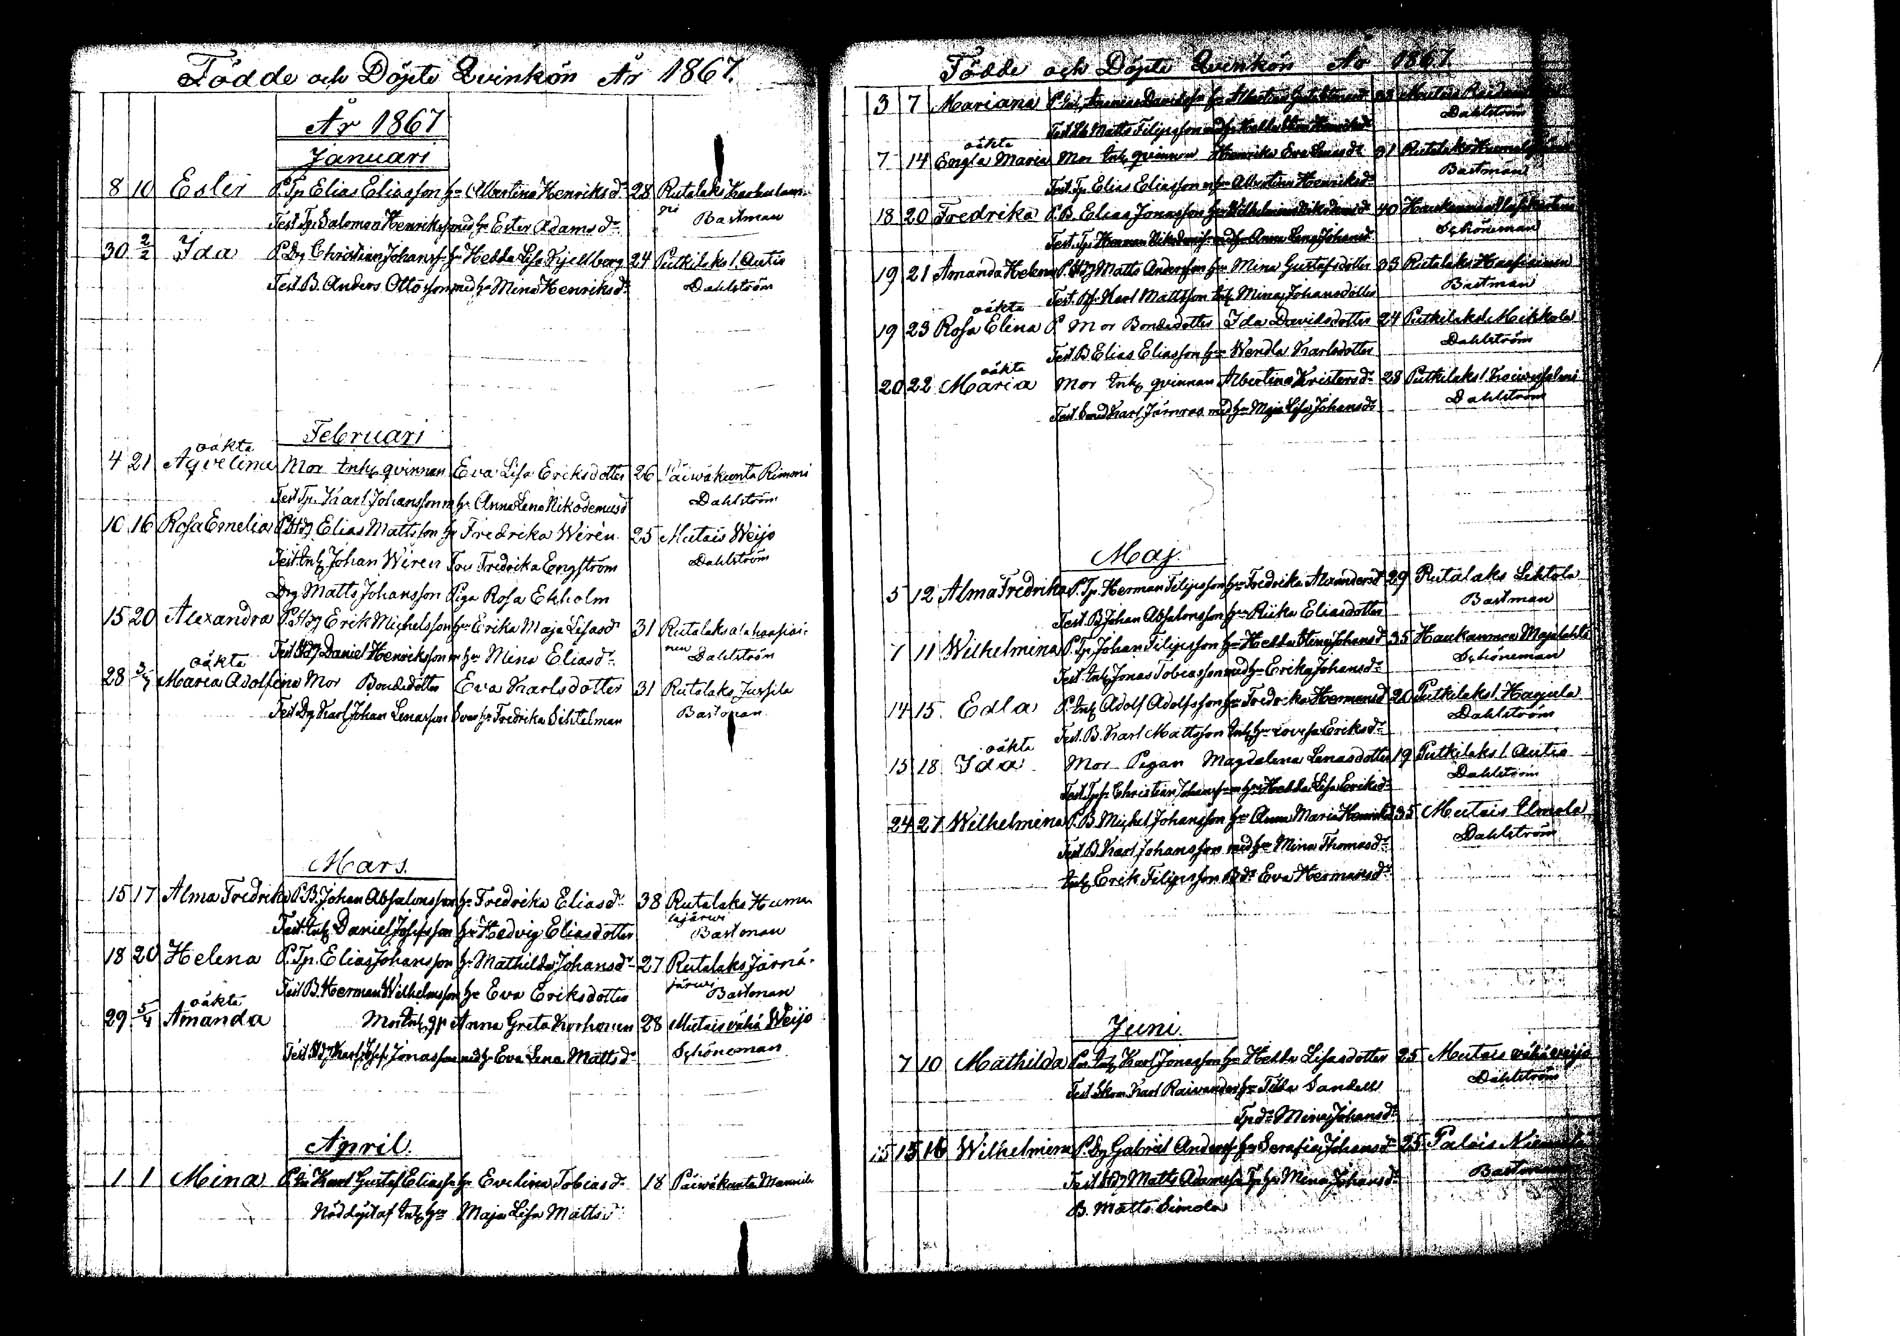 Födde och Döpte Qvinkön År 1867.
År 1867
Januari
8 10 Ester P. Tp. Elias Eliasson hu Albertina Henriksdr 28 Rutalaks
Test. Tp. Salomon Henriksson med hu Ester Adamsdr Bastman
30 2/2 Ida P. Drg Christian Johansf. hu Hedda Lisa Kjellberg 24 Putkilaks l. Autio
Test. B. Anders Ottosson med hu Mina Henriksdr Dahlström
Februari
oäkta
4 21 Aqvelina Mor Inh. qvinnan Eva Lisa Eriksdotter 26 Päiwäkunta Rimmi
Test. Tp. Karl Johansson m hu Anna Lena Nikodemusd Dahlström
10 16 Rosa Emelia P. Hdg Elias Mattsson hu Fredrika Wirén 25 Mutais Weijo
Test. Inh. Johan Wiren Fru Fredrika Engström Dahlström
Drg Matts Johansson Piga Rosa Ekholm
15 20 Alexandra P. Hdg Erik Michelsson hu Erika Maja Lisasdr 31 Rutalaks
Test. Hdg Daniel Henriksson m hu Mina Eliasdr Dahlström
oäkta
28 3/7 Maria Adolfina Mor Bondedotter Eva Karlsdotter 31 Rutalaks Jussila
Test. Drg Karl Johan Lenasson Svär hu Fredrika Bastman
Mars.
15 17 Alma Fredrika P. B. Johan Absalonsson hu Fredrika Eliasdr 38 Rutalaks Huma
lajärwi
Test. Inh. Daniel Josefsson hu Hedvig Eliasdotter Bastman
18 20 Helena P. Tp. Elias Johansson hu Mathilda Johansdr 27 Rutalaks Järnä-
järwi
Test. B. Herman Wilhelmsson hu Eva Eriksdotter Bastman
oäkta
29 5/4 Amanda Mor Inh. qv. Anna Greta Korhonen 28 Mutais vähä Weijo
Test. Hdg Karl Josef Jonasson med hu Eva Lena Mattsdr Schöneman
April.
1 1 Mina P. Karl Gustaf Eliassn hu Evelina Tobiasdr 18 Päiwäkunta
Nöddöpt af Inh. hu Maja Lisa Mattsd
Födde och Döpte Qvinkön År 1867.
3 7 Mariana P. Davidsson hu Albertina Mutais
Dahlström
Test. Matts Filipsson med hu Hedda
oäkta
7 14 Engla Maria Mor Inh. qvinnan Henrika Eva Lenasdr 31 Rutalaks
Test. Tp. Elias Eliasson m hu Albertina Henriksdr Bastman
18 20 Fredrika P. B. Elias Jonasson hu Wilhelmina Nikodemusd 40
Test. Tp. Herman med hu Anna Lena Johansd Schöneman
19 21 Amanda Helena P. Hdg Matts Andersson hu Mina Gustafsdotter 33 Rutalaks
Test. Karl Mattsson Inh. Mina Johansdotter Bastman
oäkta
19 23 Rosa Elina P. Mor Bondedotter Ida Davidsdotter 24 Putkilaks l. Mikkola
Test. B. Elias Eliasson hu Wendla Karlsdotter Dahlström
oäkta
20 22 Maria Mor Inh. qvinnan Albertina Kristersdr 28 Putkilaks l.
Test. Smed Karl med hu Maja Lisa Johansdr Dahlström
Maj.
5 12 Alma Fredrika P. Tp. Herman Filipsson hu Fredrika Alexandersd 29 Rutalaks Lehtola
Test. B. Johan Absalonsson hu Rika Eliasdotter Bastman
7 11 Wilhelmina P. Tp. Johan Filipsson hu Hedda Stina Johansd 35 Haukanmaa Majalahti
Test. Inh. Jonas Tobiasson med hu Erika Johansdr Schöneman
14 15 Edla P. Inh. Adolf Adolfsson hu Fredrika Hermansd 20 Putkilaks l. Harjula
Test. B. Karl Mattsson Inh. hu Lovisa Eriksdr Dahlström
oäkta
15 18 Ida Mor Pigan Magdalena Lenasdotter 19 Putkilaks l. Autio
Test. Christian m hu Hedda Lisa Eriksdr Dahlström
24 27 Wilhelmina P. B. Michel Johansson hu Anna Maria Henriksd 35 Mutais Elmola
Test. B. Karl Johansson med hu Mina Thomasdr Dahlström
Inh. Erik Filipsson B. dr Eva Hermansdr
Juni.
7 10 Mathilda P. Inh. Karl Jonasson hu Hedda Lisasdotter 25 Mutais vähä weijo
Test. Skom. Karl hu Sandell Dahlström
Tp. dr Mina Johansdr
15 15 16 Wilhelmina P. Drg Gabriel Andersf. hu Serafia Johansdr 25 Palais
Test. Hdg Matts Adamsson Tp. hu Mina Johansdr Bastman
B. Matts Simola